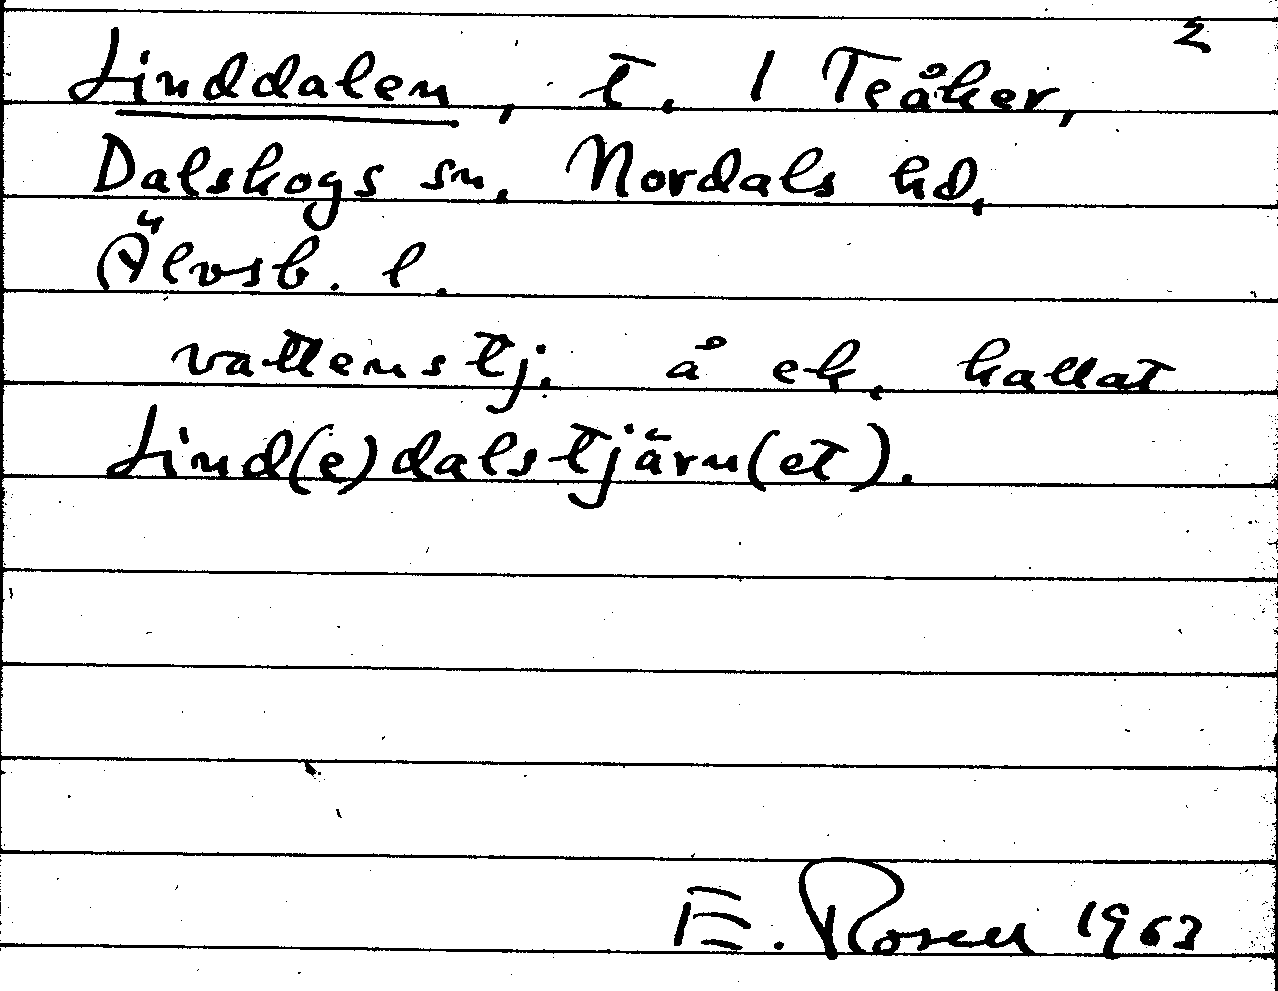 2
Linddalen, t. 1 Teåker,
Dalskogs sn. Nordals hd,
Älvsb. l.
vattenstj. å ek. kallat
Lind(e)dalstjärn(et).
E. Rosell 1963